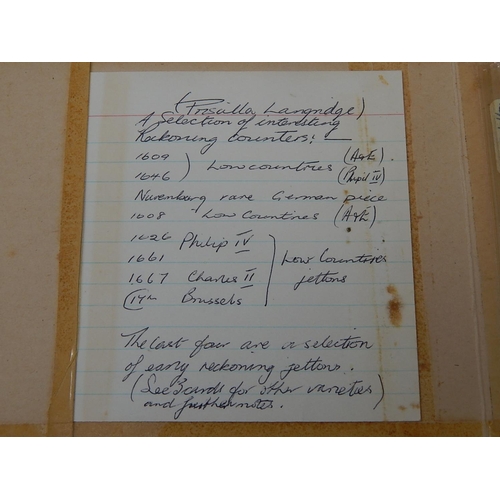 (Priscilla Langridge)
A Selection of interesting
Reckoning Counters! -
1609 ) Low countries (A&E).
1646 (Phpil IV)
Nurenburg rare German piece
1608 Low Countries (A&E)
1626 Philip IV
1661 Low Countries
1667 Charles II jettons
(17th Brussels
The last four are a selection
of early reckoning jettons.
(See Boards for other varieties)
and further notes.